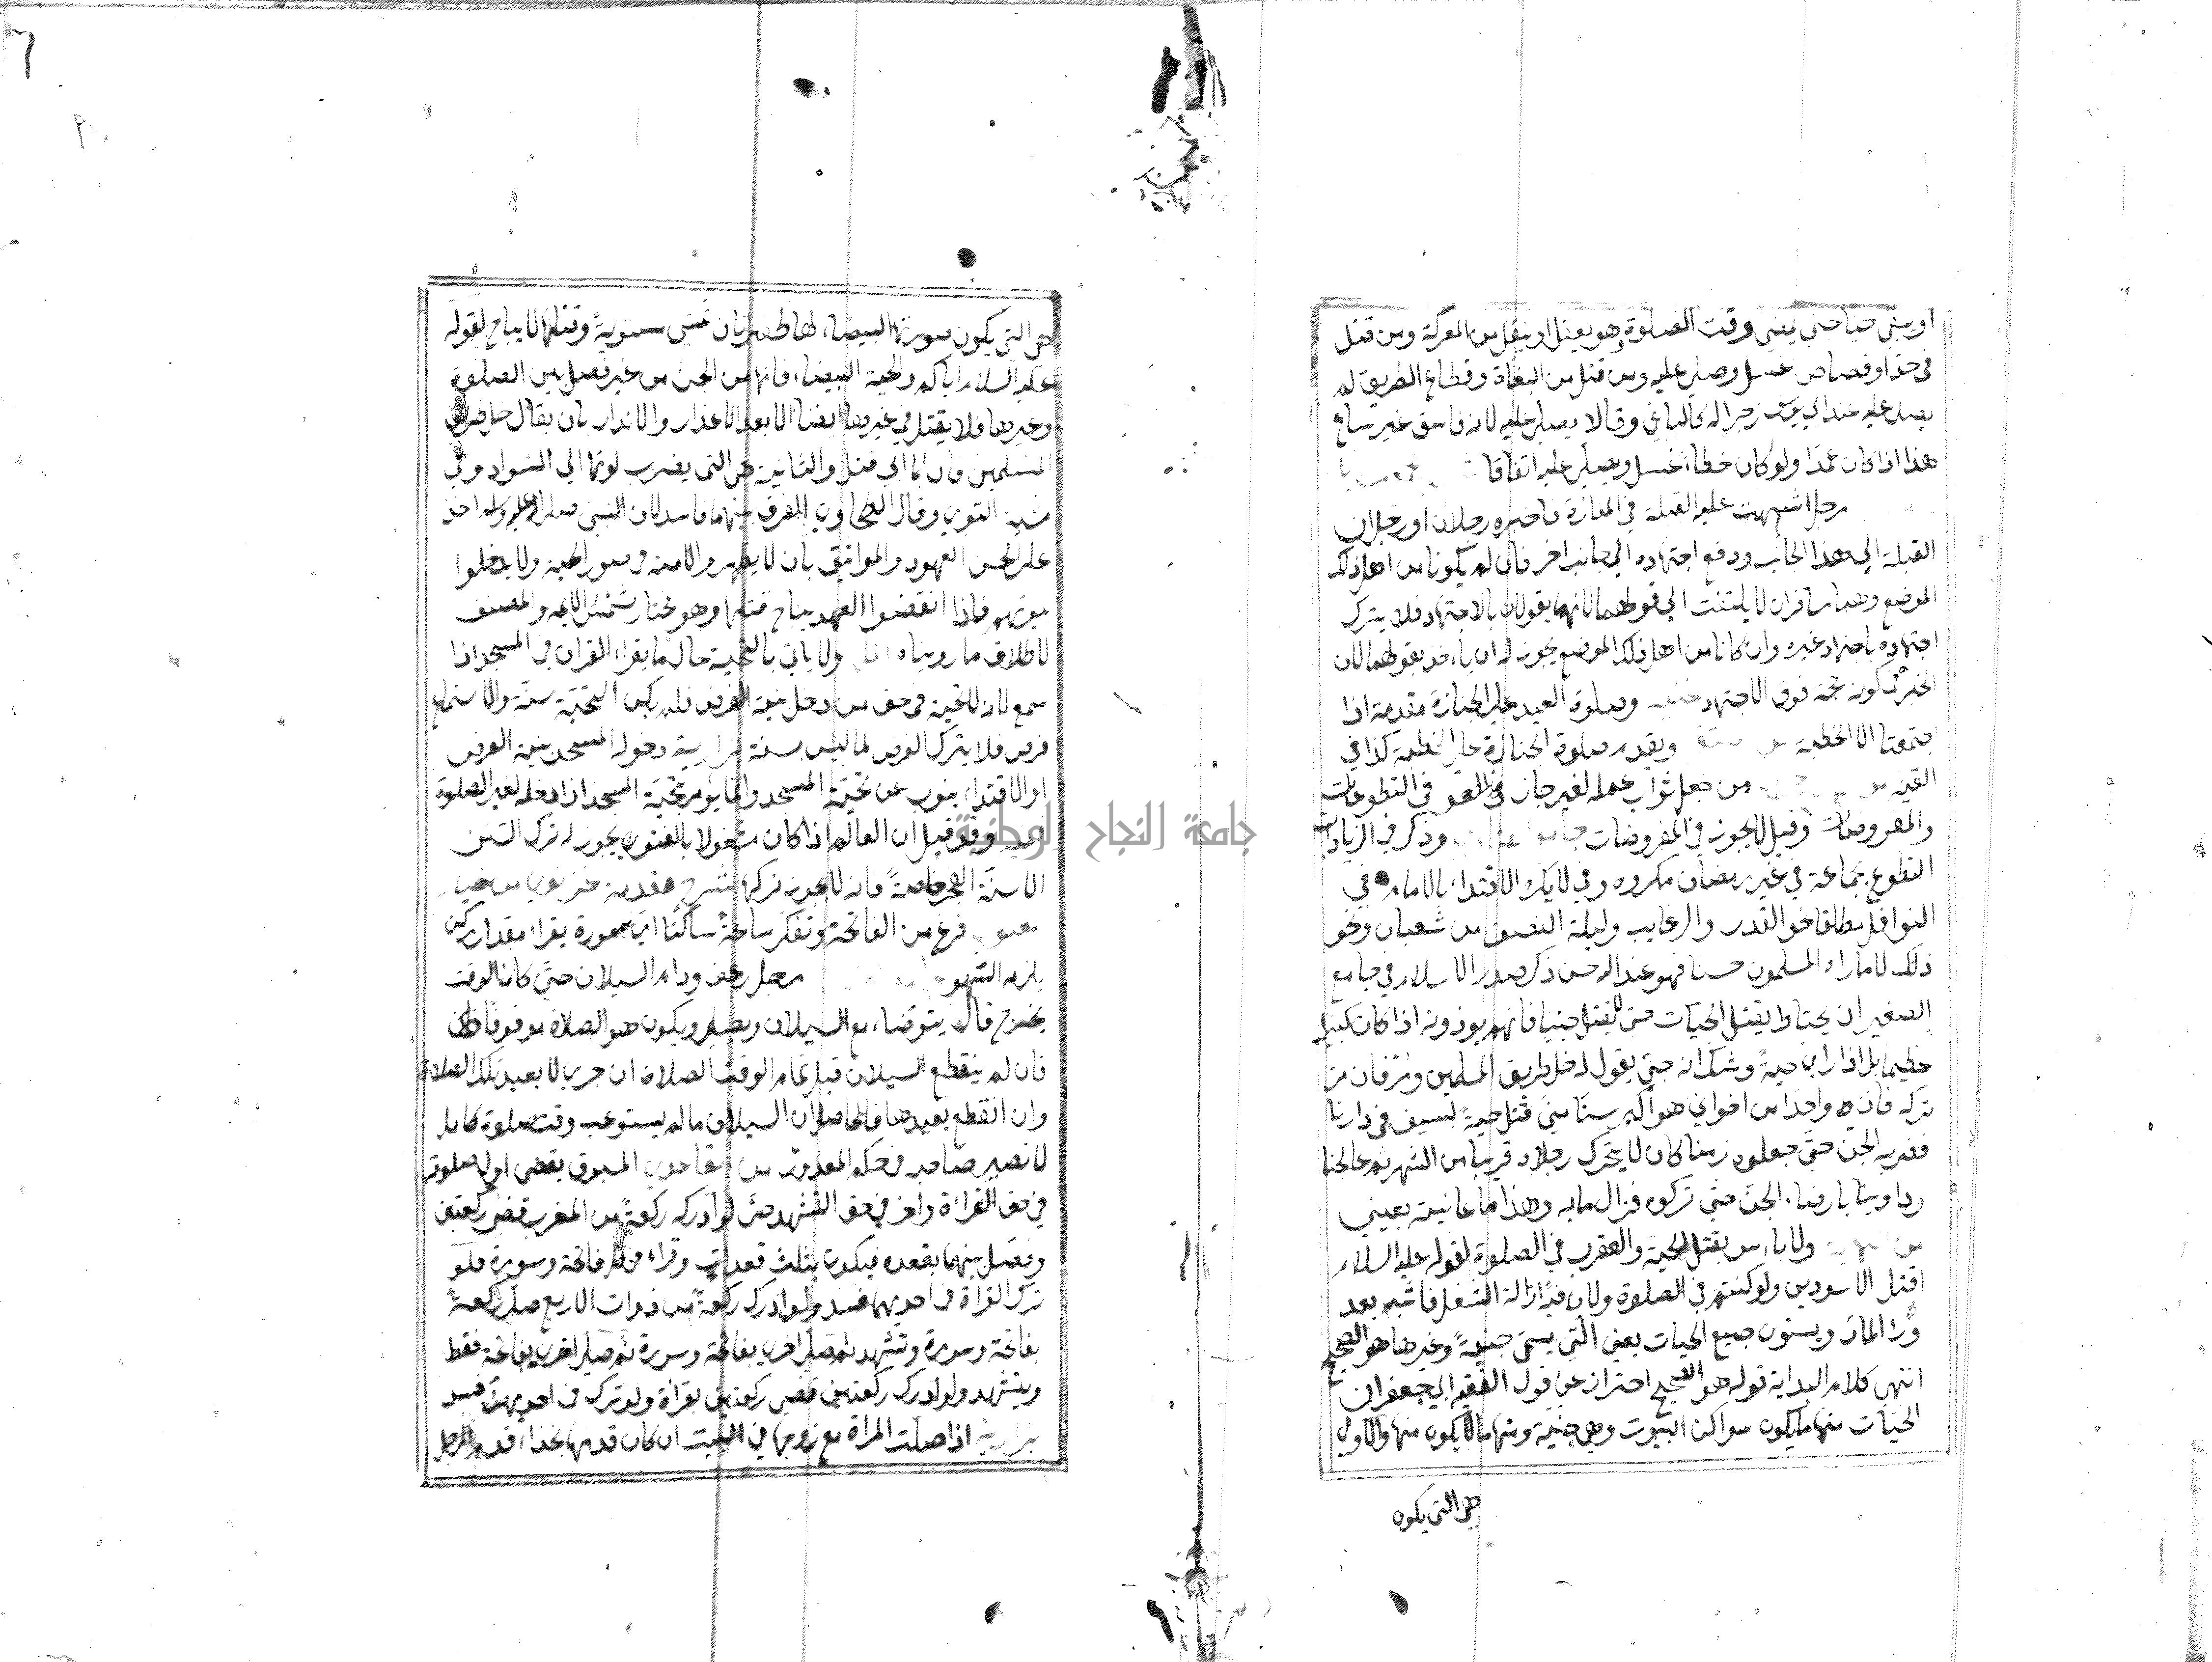 او يبقى حيا حتى يمضي وقت الصلوة وهو يعقل او ينقل من المعركة ومن قتل
في حد او قصاص غسل وصلي عليه ومن قتل من البغاة وقطاع الطريق لم
يصل عليه عند ابي يوسف زجرا له كالباغي وقالا يصلى عليه لانه فاسق غير ساع
هذا اذا كان عمدا ولو كان خطاء غسل ويصلي عليه اتفاقا
رجل اشتبهت عليه القبلة في المفازة فاخبره رجلان او رجلان
القبلة الي هذا الجانب ودفع اجتهاده الي جانب اخر فان لم يكونا من اهل ذلك
الموضع وهما مسافران لا يلتفت الي قولهما لانهما يقولان بالاجتهاد فلا يترك
اجتهاده باجتهاد غيره وان كانا من اهل ذلك الموضع يجوز له ان ياخذ بقولهما لان
الخبر في كونه حجة فوق الاجتهاد وصلوة العيد علي الجنازة مقدمة اذا
اجتمعتا الا الخطبة ويقدم صلوة الجنازة على الخطبة كذا في
القنيه من جعل ثواب عمله لغيره جاز في التطوعات
والمفروضات وقيل لا يجوز في المفروضات وذكر في الزيادات
التطوع بجماعة في غير رمضان مكروه وفي لا يكره الاقتداء بالامام في
النوافل مطلقا نحو القدر والرغايب وليلة النصف من شعبان ونحو
ذلك لا ما راه المسلمون حسنا فهو عند الله حسن ذكر صدر الاسلام في جامع
الصغير ان يحتاط بقتل الحيات حتى لا يقتل جنيا فانهم يوذونه اذا كان كبيرا
عظيما بل اذا راي حية وشك انه جني يقول له خل طريق المسلمين ومر فان مر
تركه فان واحدا من اخواني هو اكبر سنا مني قتل حية بسيف في دارنا
فضربه الجن حتى جعلوه زمنا كان لا يتحرك رجلاه قريبا من الشهر ثم عالجنا
وداويناه بارضاء الجن حتى تركوه فزال ما به وهذا ما عاينته بعيني
ولا باس بقتل الحية والعقرب في الصلوة لقوله عليه السلام
اقتلوا الاسودين ولو كنتم في الصلوة ولان فيه ازالة الشغل فاشبه بعد
درء المار ويستوي جميع الحيات يعني التي يسمى جنية وغيرها هو الصحيح
انتهى كلام الهداية قوله هو الصحيح احتراز عن قول الفقيه ابي جعفر ان
الحيات منها ما يكون سواكن البيوت وهي جنية ومنها ما لا يكون منها والاولى
هي التي يكون
هي التي يكون صورتها البيضاء لها ظفرتان تمشي مستوية وقتلها لا يباح لقوله
عليه السلام اياكم والحية البيضاء فانها من الجن من غير فصل بين الصلوة
وغيرها فلا يقتل في غيرها ايضا الا بعد الاعذار والانذار بان يقال خل طريق
المسلمين فان ابى قتل والثانية هي التي يضرب لونها الى السواد وفي
مشيه التوي وقال الطحاوي الفرق بينهما فاسد لان النبي صلى الله عليه وسلم اخذ
على الجن العهود والمواثيق بان لا يظهروا لامته في صور الحية ولا يدخلوا
بيوتهم فاذا انقضوا العهد يباح قتلها وهو مختار شمس الايمه والمصنف
لاطلاق ما رويناه ولا ياتي بالتحية حال ما يقراء القران في المسجد اذا
سمع لانه لا تحية في حق من دخل بنية الفرض فلم يكن التحية سنة والاستماع
فرض فلا يترك الفرض لما ليس بسنة بزازية دخوله المسجد بنية الفرض
او الاقتداء ينوب عن تحية المسجد وانما يؤمر بتحية المسجد اذا دخله لغير الصلوة
وقد قيل ان العالم اذا كان مشغولا بالفتوي يجوز له ترك السنن
الا سنة الفجر خاصة فانه لا يجوز تركها شرح مقدمة
فرغ من الفاتحة وتفكر ساعة ساكتا اي سورة يقراء مقدار ركن
يلزمه السهو رجل رعف ودام السيلان حتى كان الوقت
يخرج قال يتوضاء مع السيلان ويصلي ويكون هو الصلاة موقوفا
فان لم ينقطع السيلان قبل تمام الوقت الصلاة اخري لا يعيد تلك الصلاة
وان انقطع يعيدها فالحاصل ان السيلان ما لم يستوعب وقت صلوة كاملا
لا تصير صاحبه في حكم المعذور المسبوق يقضي اول صلوته
في حق القراءة واخر في حق التشهد حتى لو ادركه ركعة من المغرب قضى ركعتين
وفصل بينهما بقعده فيكون بثلث قعدات وقراء في كل فاتحة وسورة فلو
ترك القراة في احديهما فسد ولو ادرك ركعة من ذوات الاربع صلى ركعة
بفاتحة وسورة وتشهد ثم صلى اخري بفاتحة وسورة ثم صلى اخري بفاتحة فقط
وتشهد ولو ادرك ركعتين قضى ركعتين بقراة ولو ترك في احديهما فسد
بزازية اذا صلت المراة مع زوجها في البيت ان كان قدمها بحذاء قدم الرجل
جامعة النجاح الوطنية